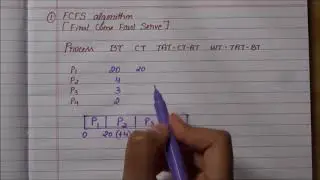 ① FCFS algorithm
[First Come First Serve]
Process BT CT TAT=CT-AT WT=TAT-BT
P1 20 20
P2 4
P3 3
P4 2
P1 P2 P3
0 20 (+4)